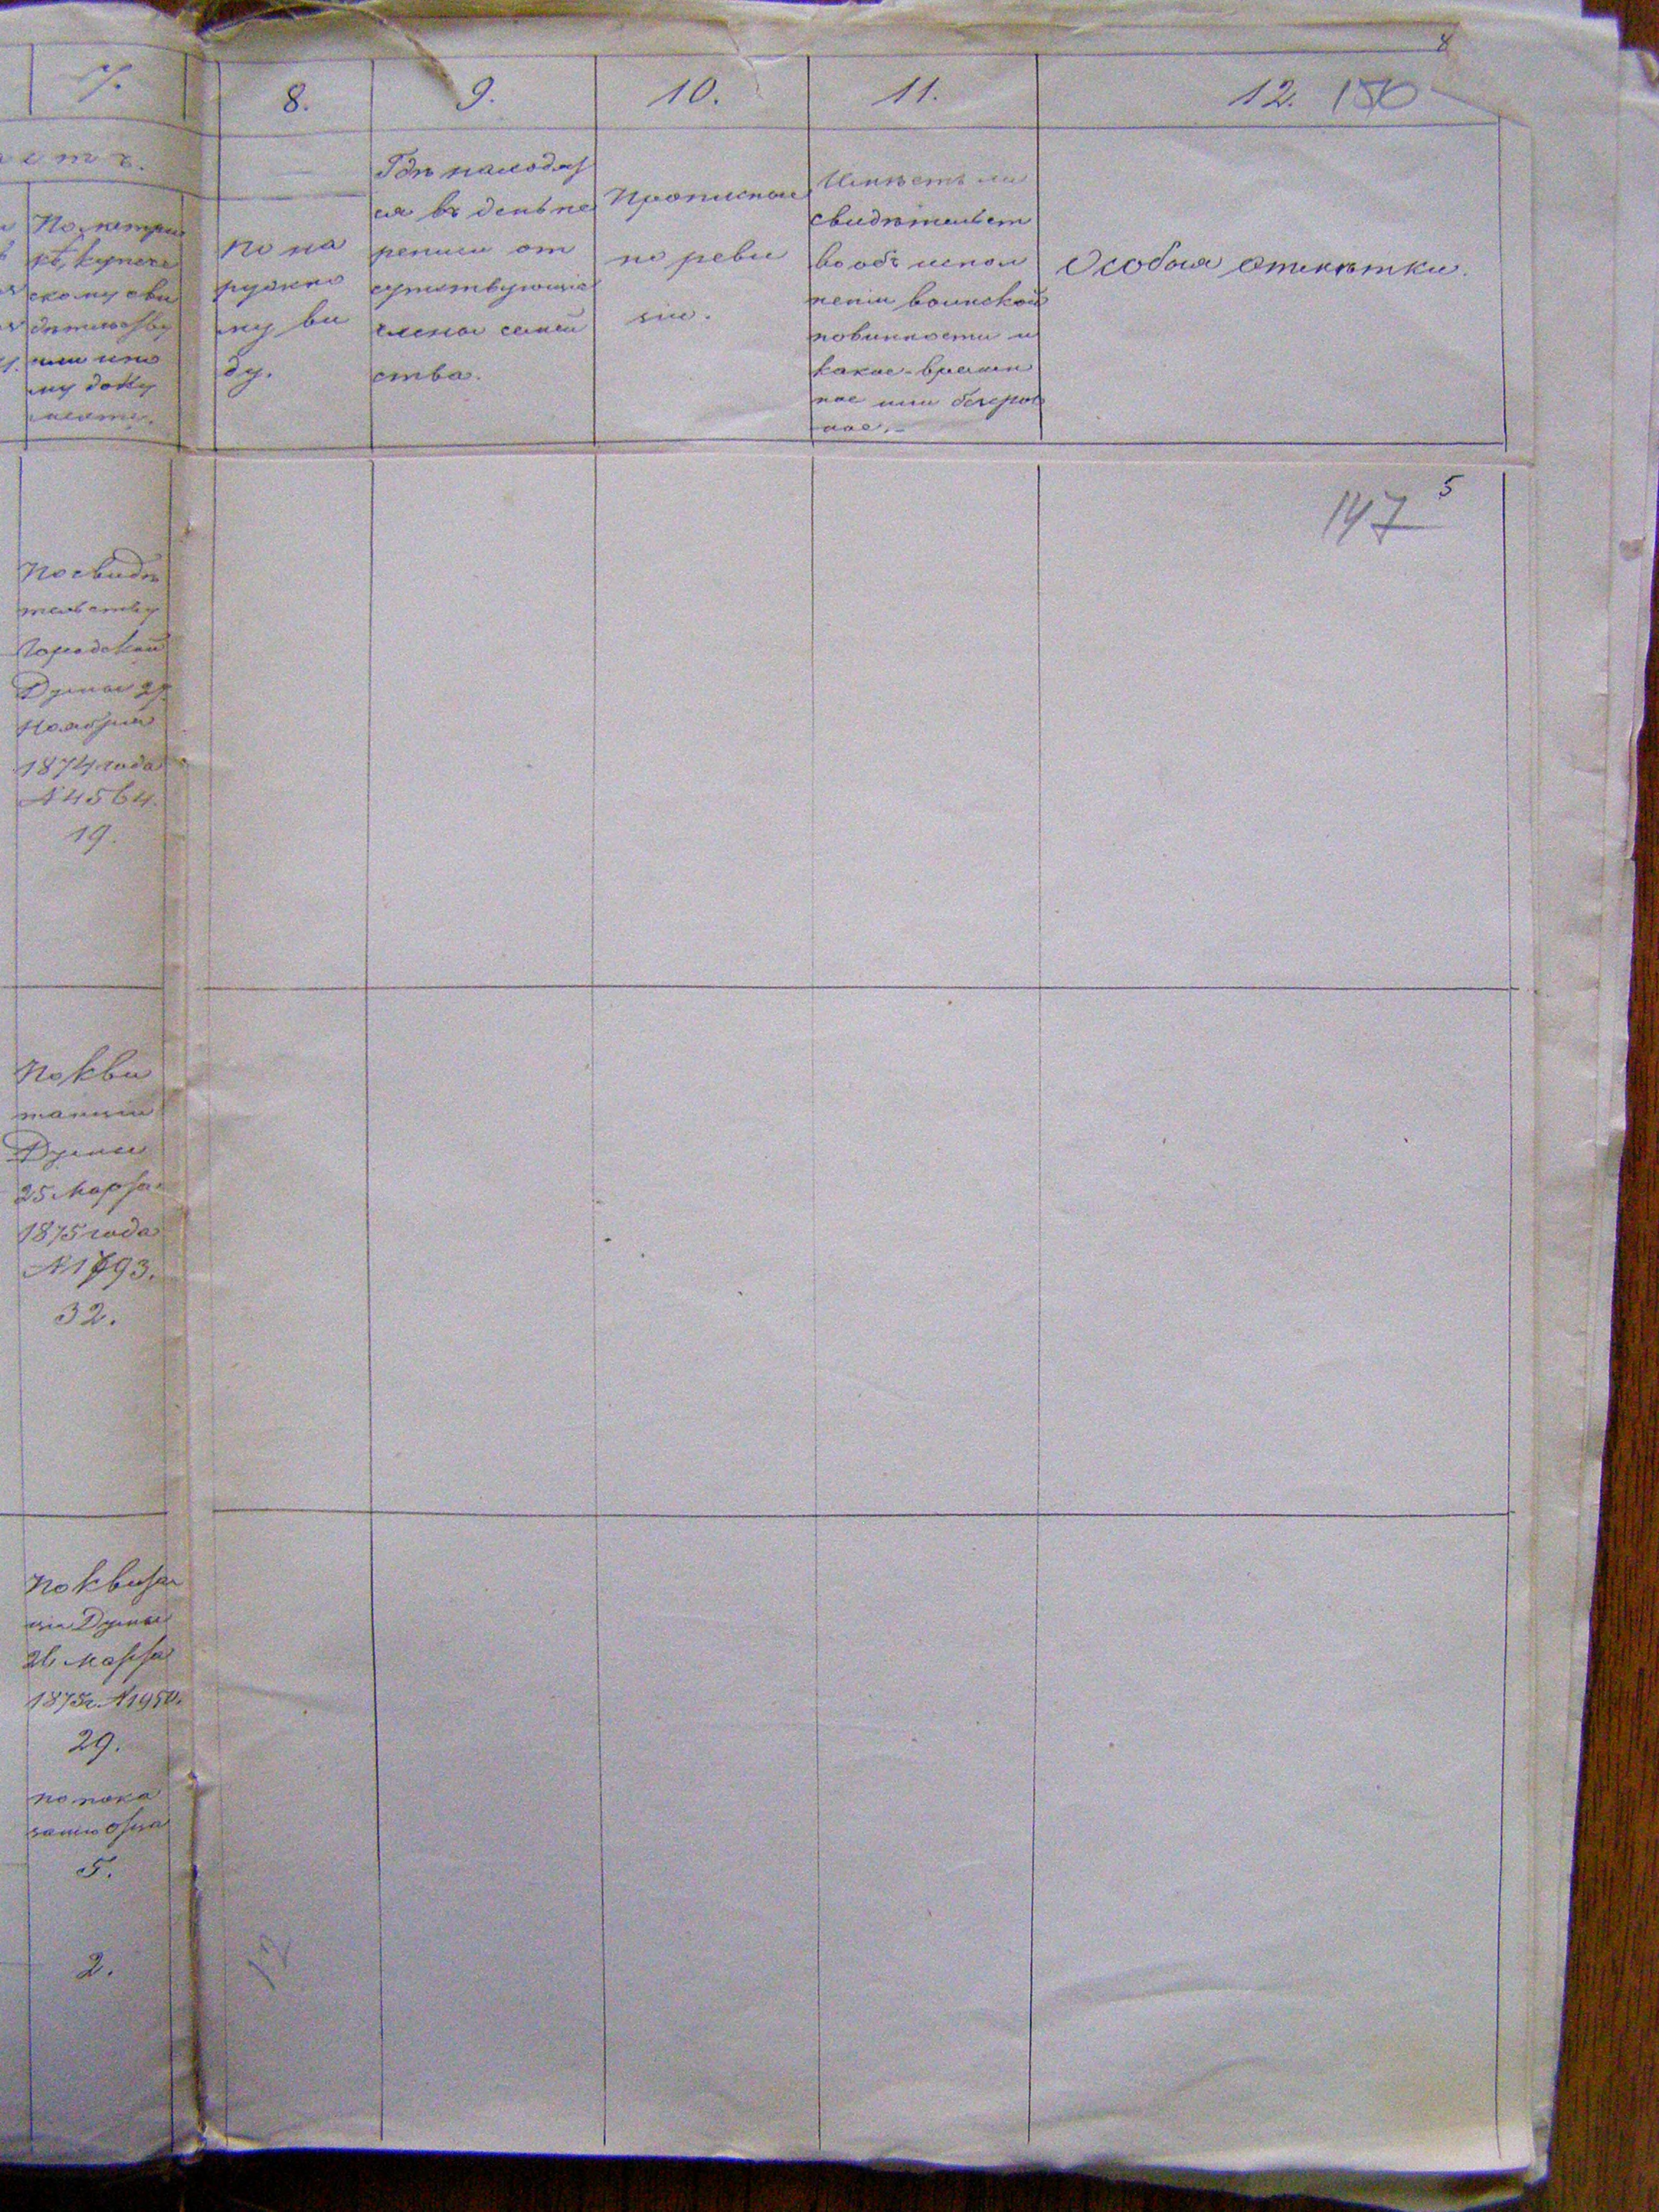 7.
8.
9.
10.
11.
12.
150
По метри
кѣ, купече
скому сви
дѣтельству
или ино
му доку
менту.
По на
ружно
му ви
ду.
Гдѣ находят
ся въ день пе
реписи от
сутствующіе
члены семей
ства.
Прописные
по реви
зіи.
Имѣетъ ли
свидѣтельст
во объ испол
неніи воинской
повинности и
какое - времен
ное или безсроч
ное. -
Особыя отмѣтки.
147
5
По свидѣ
тельству
Городской
Думы
Ноября
1874 года
№ 4564.
19.
По кви
танціи
Думы
25 Марта
1875 года
32.
По квитан
ціи Думы
26 Марта
1875 г. № 1950.
29.
по пока
занію отца
5.
2.
12